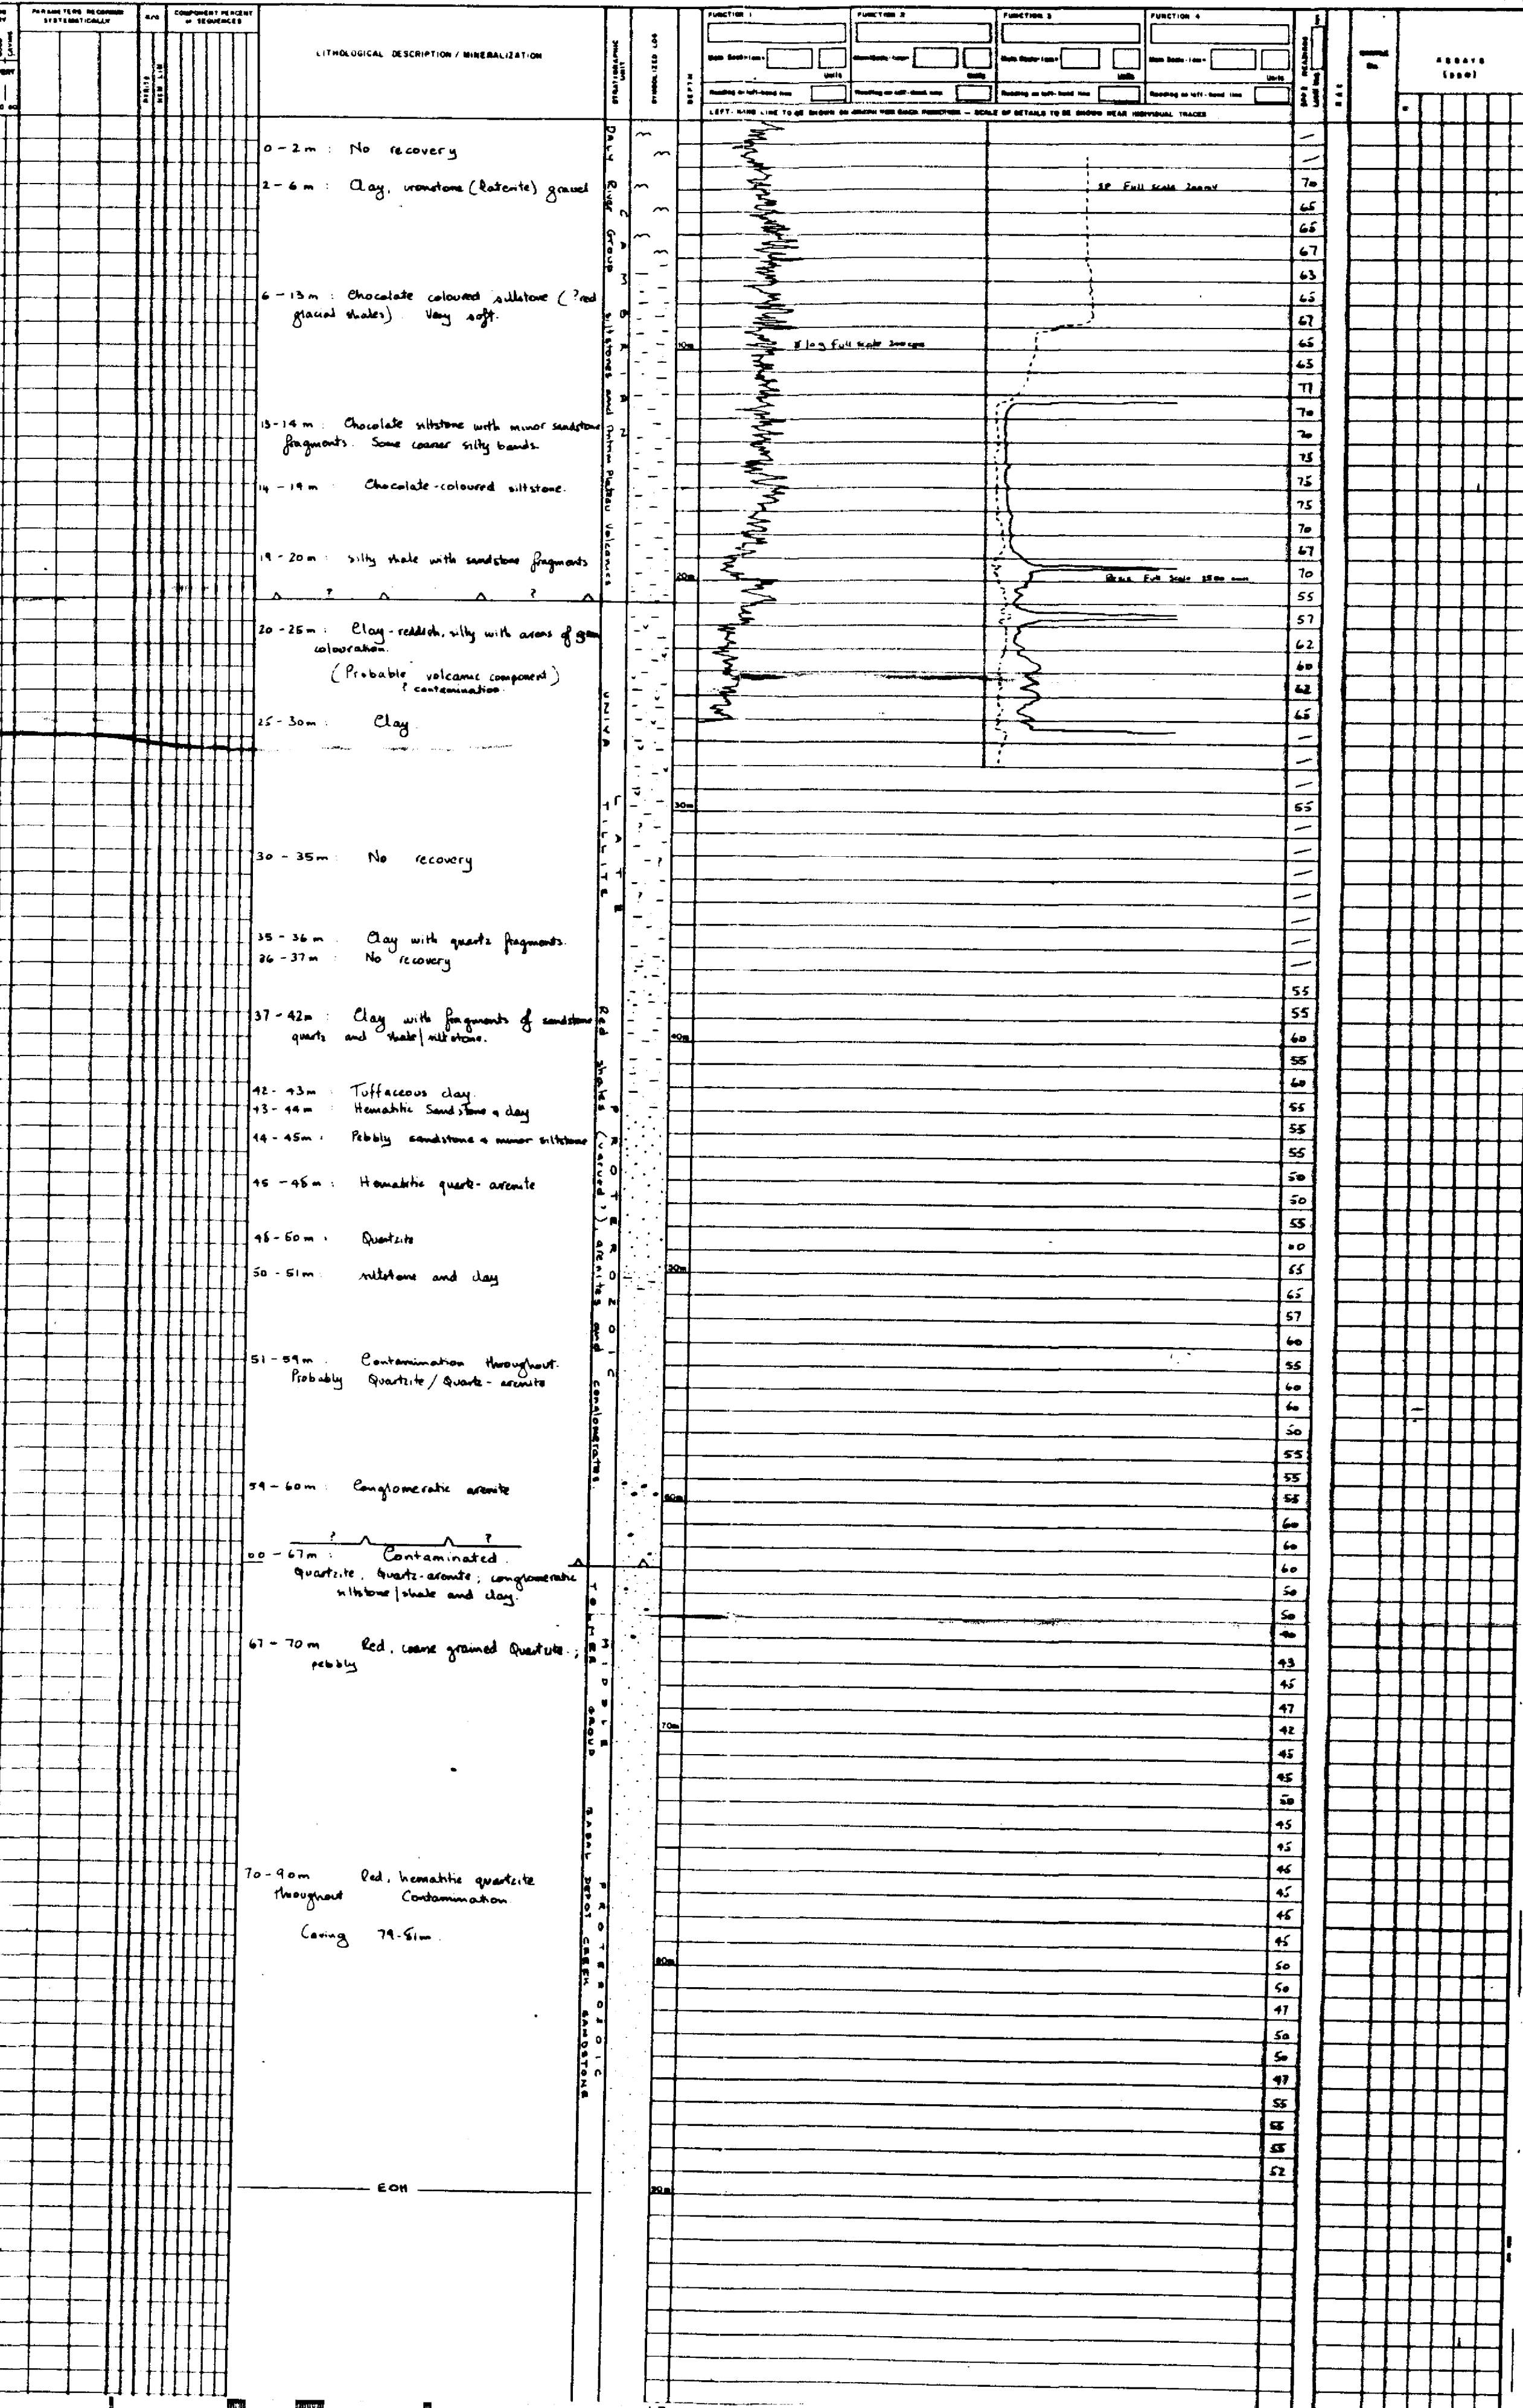 PARAMETERS RECORDED
SYSTEMATICALLY
COMPONENT PERCENT
or SEQUENCES
LITHOLOGICAL DESCRIPTION / MINERALIZATION
STRATIGRAPHIC
UNIT
SYMBOLIZED LOG
DEPTH
FUNCTION 1
FUNCTION 2
FUNCTION 3
FUNCTION 4
Units
Units
Units
Units
Reading on left-hand line
Reading on left-hand line
Reading on left-hand line
Reading on left-hand line
LEFT-HAND LINE TO BE SHOWN ON GRAPH FOR EACH FUNCTION — SCALE OF DETAILS TO BE SHOWN NEAR INDIVIDUAL TRACES
ASSAYS
(ppm)
0 - 2m : No recovery
2 - 6 m : Clay, ironstone (laterite) gravel
6 - 13m : Chocolate coloured siltstone ( ? red
glacial shales) Very soft.
13-14 m : Chocolate siltstone with minor sandstone
fragments. Some coarser silty bands.
14 - 19m Chocolate-coloured siltstone.
19 - 20m : silty shale with sandstone fragments
? ?
20-25m : Clay-reddish, silty with areas of
colouration.
(Probable volcanic component)
? contamination.
25-30m : Clay
30 - 35m : No recovery
35 - 36 m : Clay with quartz fragments.
36 - 37m : No recovery
37 - 42m : Clay with fragments of sandstone
quartz and shale/siltstone.
42 - 43m : Tuffaceous clay.
43 - 44m : Hematitic Sandstone & clay
44 - 45m : Pebbly sandstone & minor siltstone
45 - 48m : Hematitic quartz-arenite
48 - 50m : Quartzite
50 - 51m : siltstone and clay
51 - 59m Contamination throughout.
Probably Quartzite / Quartz-arenite
59 - 60m : Conglomeratic arenite
? ?
60 - 67m : Contaminated.
Quartzite, Quartz-arenite; conglomeratic
siltstone/shale and clay.
67 - 70m Red, coarse grained Quartzite ;
pebbly
70-90m Red, hematitic quartzite
throughout Contamination.
Caving 79-81m.
EOH
Daly River Group siltstones and Antrim Plateau Volcanics
CAMBRIAN
UNIYA TILLITE
LATE
Red shales (varved?), arenites and conglomerates.
PROTEROZOIC
TOLMER GROUP BASAL DEPOT CREEK SANDSTONE
MIDDLE PROTEROZOIC
10m
20m
30m
40m
50m
60m
70m
80m
90m
SP Full scale 200mV
γ log Full scale 200 cps
Full Scale
70
65
65
67
63
65
67
65
65
77
70
70
75
75
75
70
67
70
55
57
62
60
62
65
55
55
55
60
55
60
55
55
55
50
50
55
60
55
65
57
60
55
60
60
50
55
55
55
60
60
60
50
50
40
43
45
47
42
45
45
50
45
45
46
45
45
45
50
50
47
50
50
47
55
55
55
52